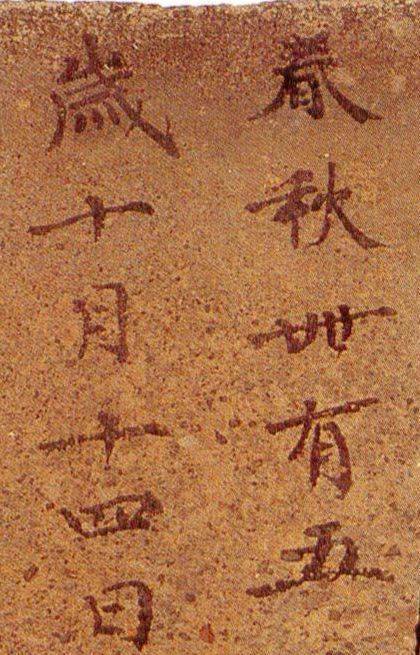 春秋卅有五
歲十月十四日